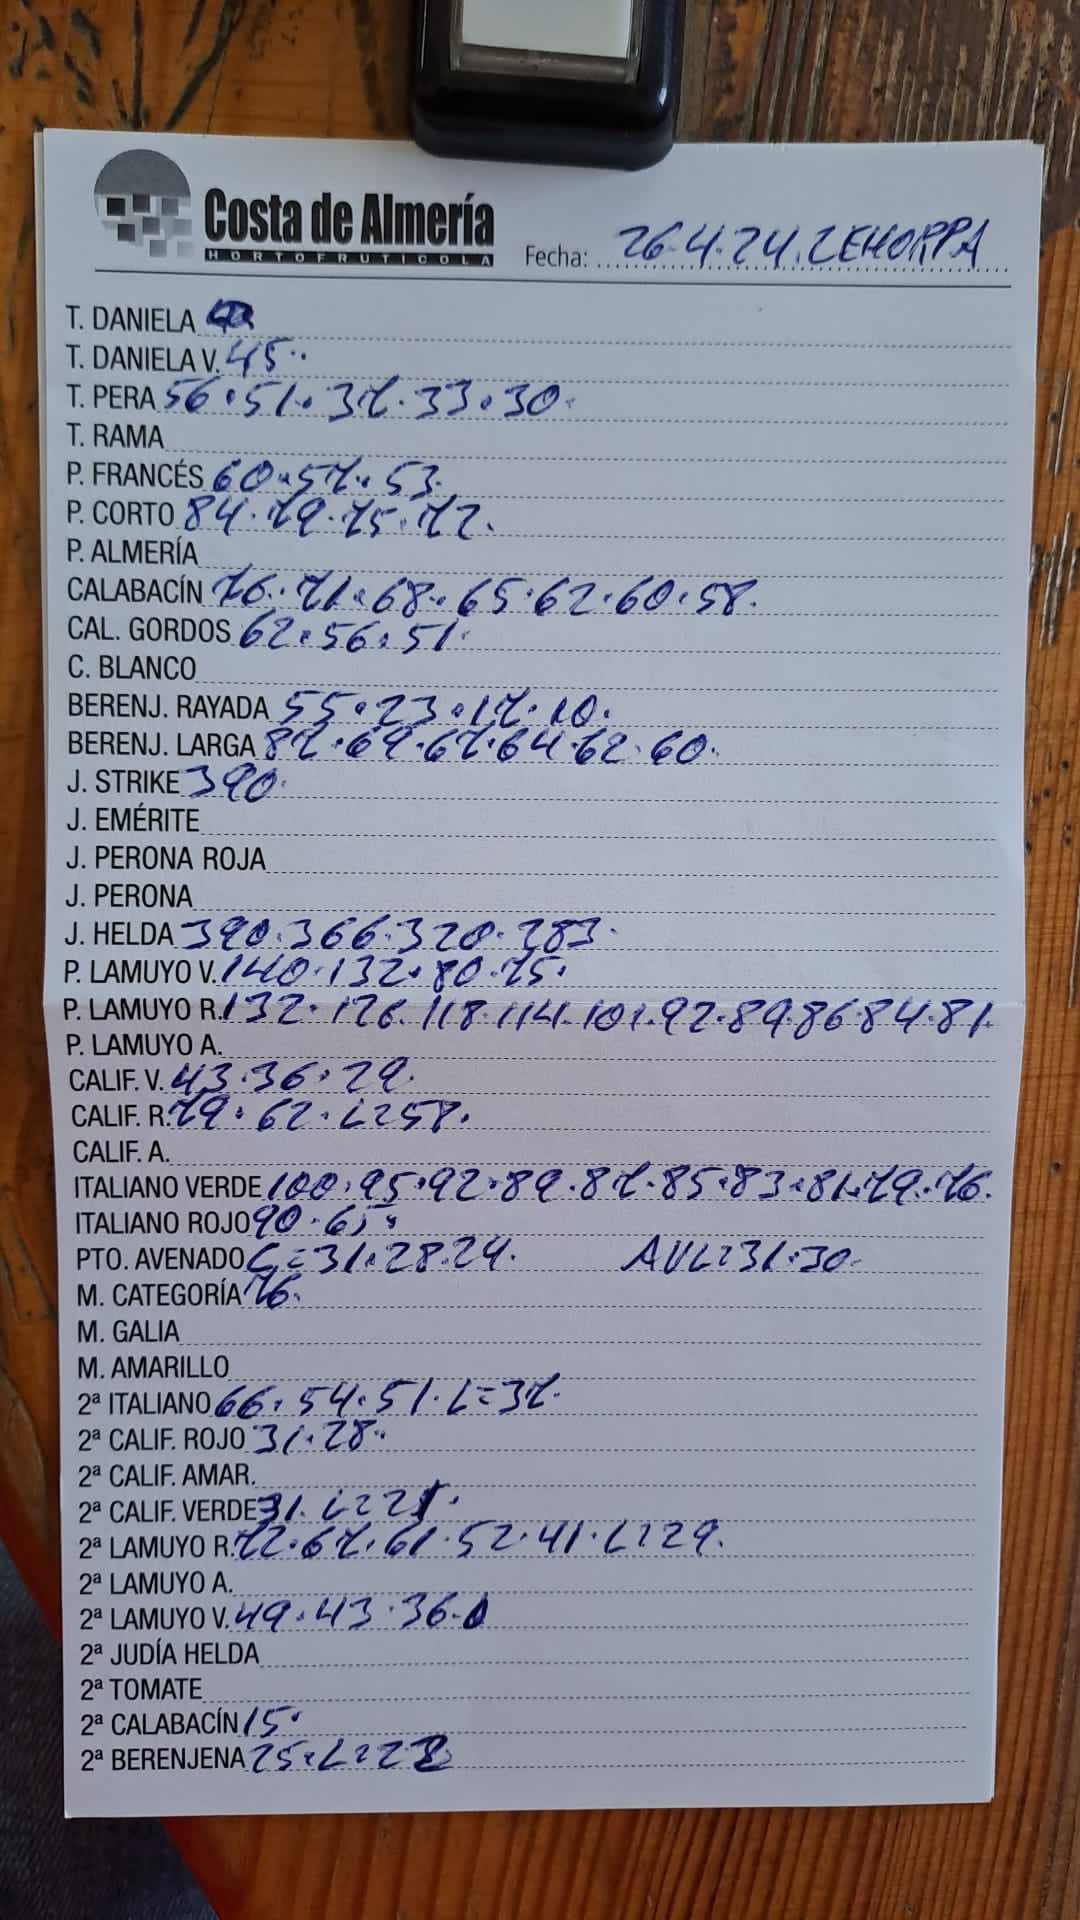 Costa de Almería
HORTOFRUTICOLA
Fecha: 26.4.24. ZEHORPA
T. DANIELA
T. DANIELA V. 45.
T. PERA 56.51.37.33.30.
T. RAMA
P. FRANCÉS 60.57.53.
P. CORTO 84.79.75.72.
P. ALMERÍA
CALABACÍN 76.71.68.65.62.60.58.
CAL. GORDOS 62.56.51.
C. BLANCO
BERENJ. RAYADA 55.23.17.10.
BERENJ. LARGA 87.69.67.64.62.60.
J. STRIKE 390.
J. EMÉRITE
J. PERONA ROJA
J. PERONA
J. HELDA 390.366.320.283.
P. LAMUYO V. 140.132.80.75.
P. LAMUYO R. 132.126.118.114.101.92.89.86.84.81.
P. LAMUYO A.
CALIF. V. 43.36.29.
CALIF. R. 79.62.L=58.
CALIF. A.
ITALIANO VERDE 100.95.92.89.87.85.83.81.79.76.
ITALIANO ROJO 90.65.
PTO. AVENADO C=31.28.24. AVL=31.30.
M. CATEGORÍA 76.
M. GALIA
M. AMARILLO
2ª ITALIANO 66.54.51.L=37.
2ª CALIF. ROJO 31.28.
2ª CALIF. AMAR.
2ª CALIF. VERDE 31. L=21.
2ª LAMUYO R. 72.67.61.52.41.L=29.
2ª LAMUYO A.
2ª LAMUYO V. 49.43.36.
2ª JUDÍA HELDA
2ª TOMATE
2ª CALABACÍN 15.
2ª BERENJENA 25.L=22